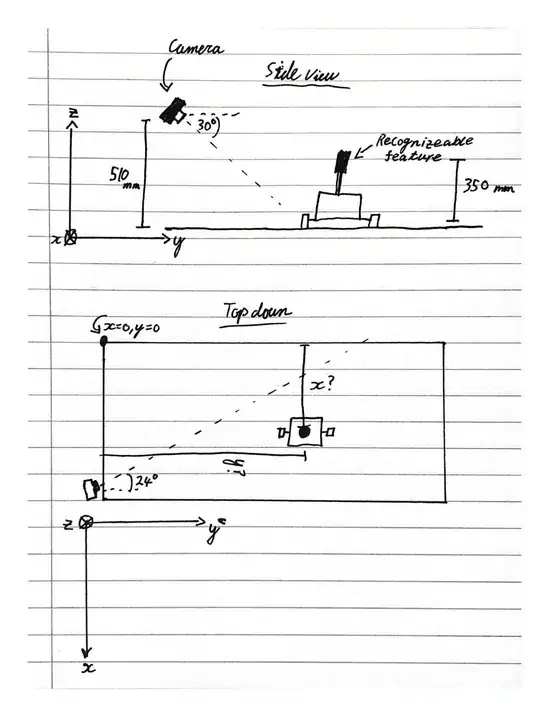 Camera
Side view
z
30°
Recognizeable
feature
510
mm
350 mm
x
y
Top down
x=0,y=0
x?
y?
24°
z
y
x